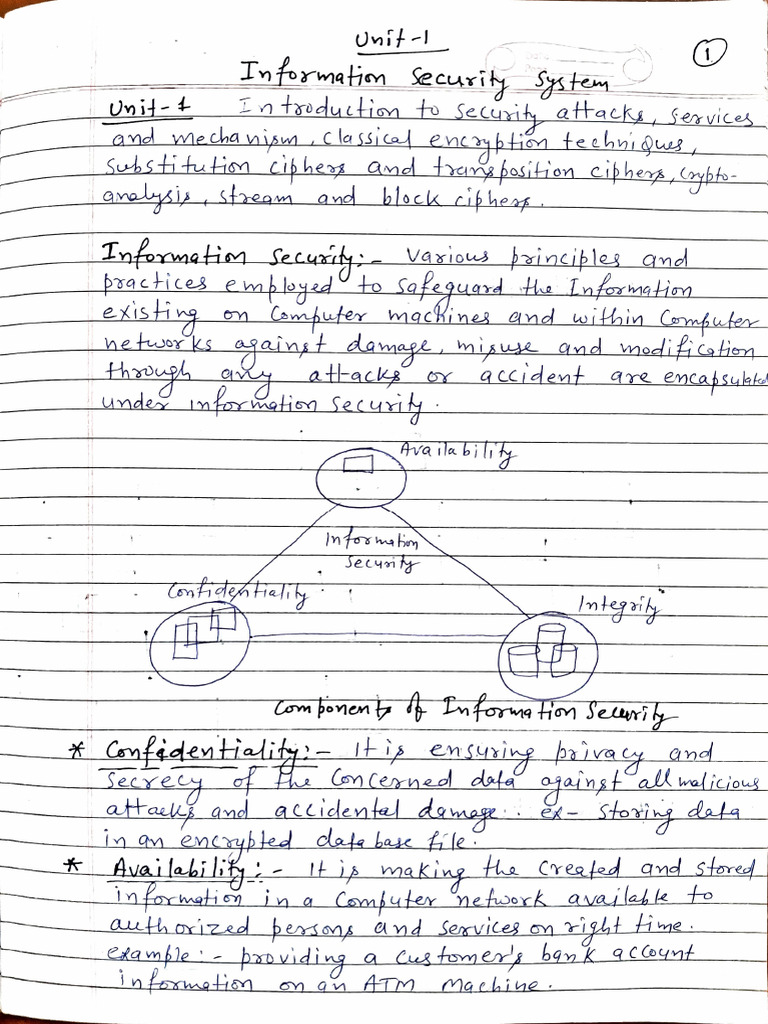 Unit-1
1
Information Security System
Unit-1 Introduction to security attacks, services
and mechanism, classical encryption techniques,
substitution ciphers and transposition ciphers, crypto-
analysis, stream and block ciphers.
Information security:- Various principles and
practices employed to safeguard the Information
existing on Computer machines and within Computer
networks against damage, misuse and modification
through any attacks or accident are encapsulated
under information security.
Availability
Information
Security
Confidentiality
Integrity
Components of Information Security
* Confidentiality:- It is ensuring privacy and
secrecy of the concerned data against all malicious
attacks and accidental damage. ex- storing data
in an encrypted data base file.
* Availability:- It is making the created and stored
information in a Computer network available to
authorized persons and services on right time.
example:- providing a customer's bank account
information on an ATM Machine.